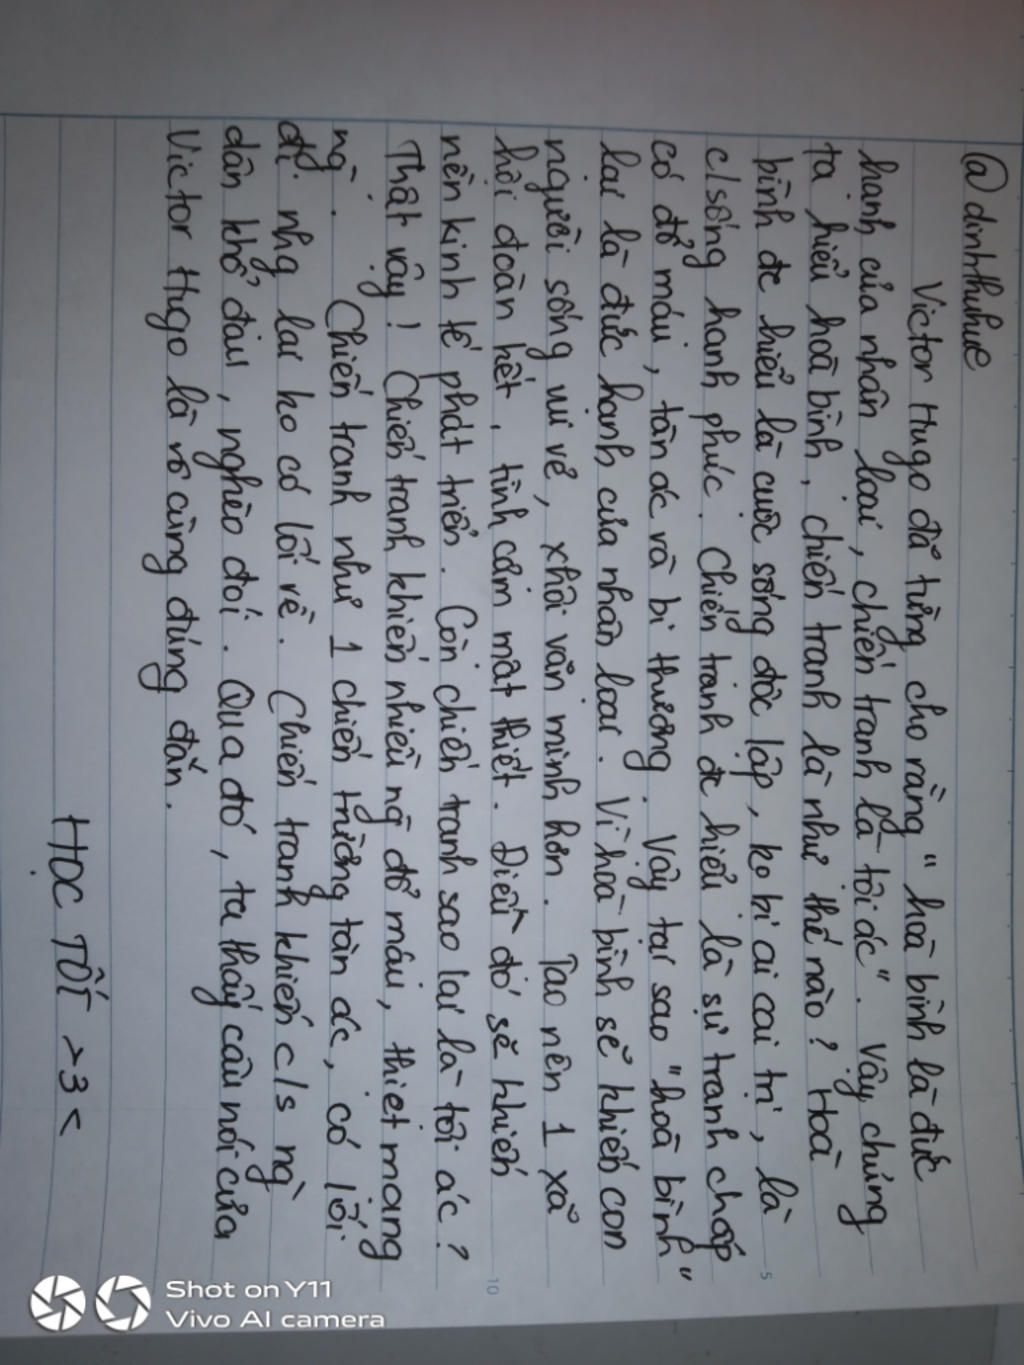 @dinhthuhue
Victor Hugo đã từng cho rằng "hoà bình là đức
hạnh của nhân loại, chiến tranh là tội ác". Vậy chúng
ta hiểu hoà bình, chiến tranh là như thế nào? Hoà
bình đc hiểu là cuộc sống độc lập, ko bị ai cai trị, là
c/sống hạnh phúc. Chiến tranh đc hiểu là sự tranh chấp
có đổ máu, tàn ác và bi thương. Vậy tại sao "hoà bình"
lại là đức hạnh của nhân loại. Vì hoà bình sẽ khiến con
người sống vui vẻ, xã hội văn minh hơn. Tạo nên 1 xã
hội đoàn kết, tình cảm mật thiết. Điều đó sẽ khiến
nền kinh tế phát triển. Còn chiến tranh sao lại là tội ác?
Thật vậy! Chiến tranh khiến nhiều ng đổ máu, thiệt mạng
ng. Chiến tranh như 1 chiến trường tàn ác, có lối
đi nhg lại ko có lối về. Chiến tranh khiến c/s ng
dân khổ đau, nghèo đói. Qua đó, ta thấy câu nói của
Victor Hugo là vô cùng đúng đắn.
HỌC TỐT >3<
5
10
Shot on Y11
Vivo AI camera